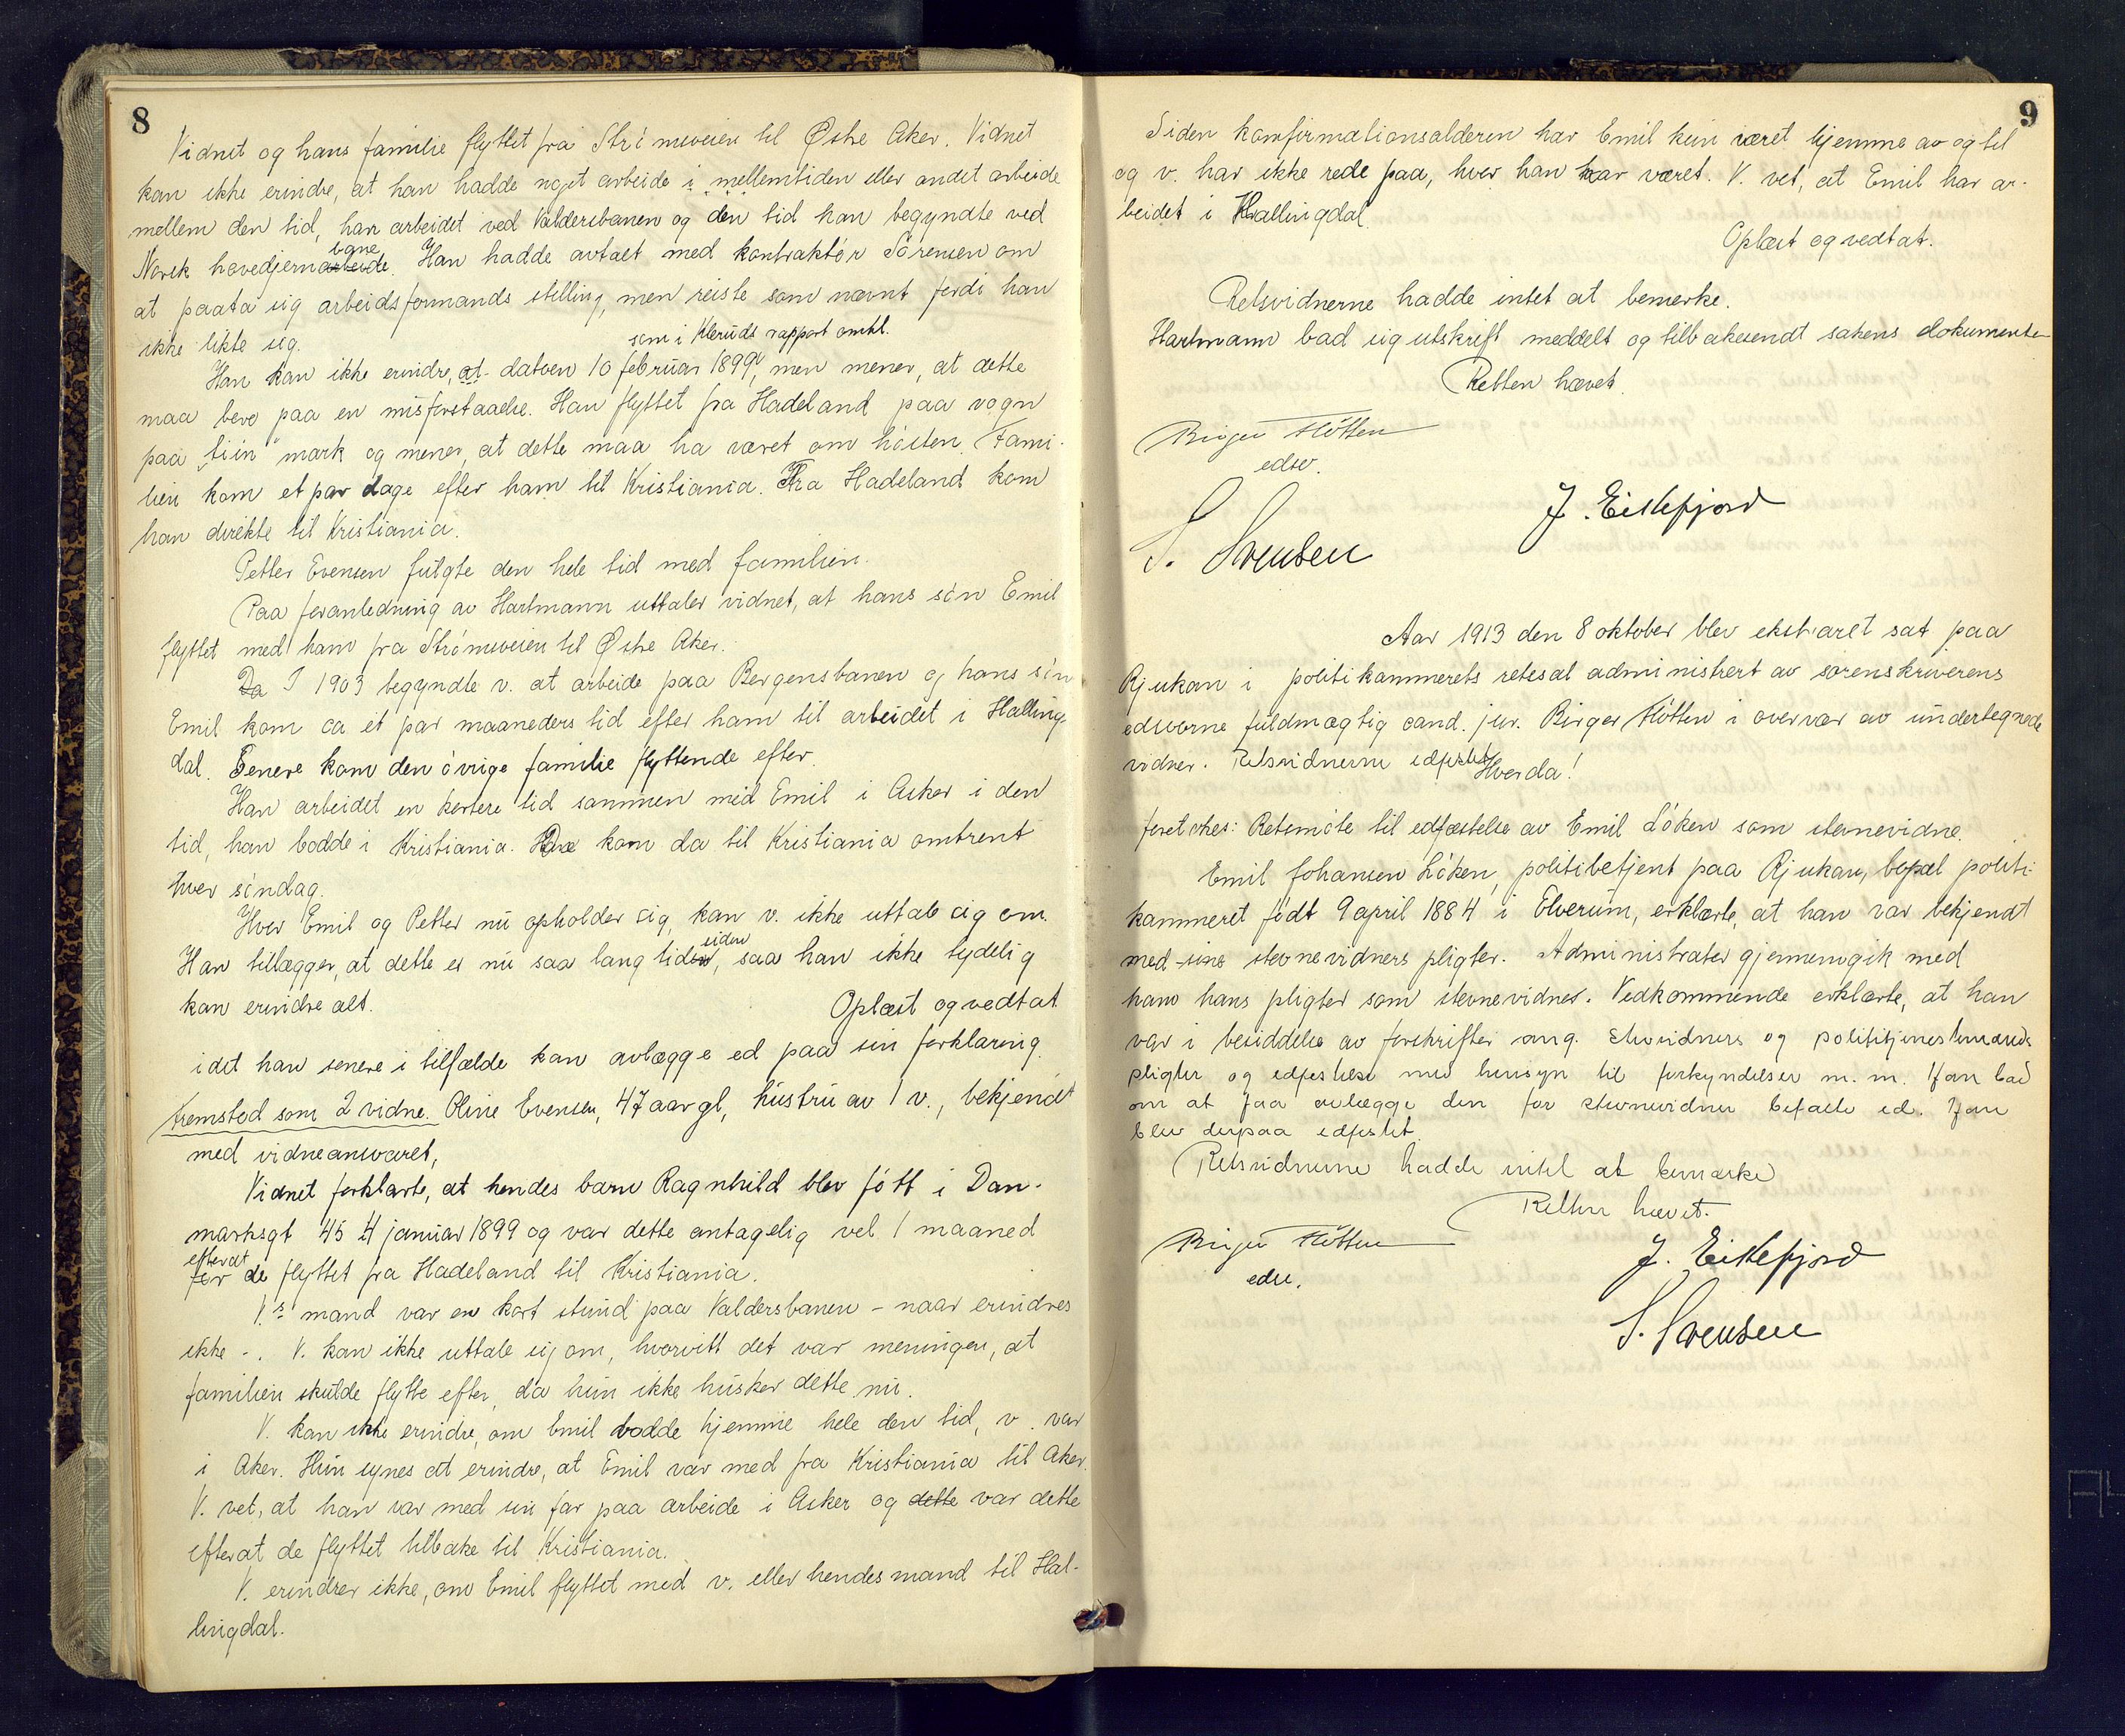 8
Vidnet og hans familie flyttet fra Strömsveien til Østre Aker. Vidnet
kan ikke erindre, at han hadde noget arbeide i mellemtiden eller andet arbeide
mellem den tid, han arbeidet ved Valdersbanen og den tid han begyndte ved
bane
Norsk hovedjernarbeide. Han hadde avtalt med kontraktör Sörensen om
at paata sig arbeidsformands stilling, men reiste som nævnt fordi han
ikke likte sig.
som i Kleruds rapport omhl.
Han kan ikke erindre, at datoen 10 februar 1899, men mener, at dette
maa bero paa en misforstaaelse. Han flyttet fra Hadeland paa vogn
paa "tiin" mark og mener, at dette maa ha været om hösten. Fami-
lien kom et par dage efter ham til Kristiania. Fra Hadeland kom
han direkte til Kristiania.
Petter Evensen fulgte den hele tid med familien.
Paa foranledning av Hartmann uttaler vidnet, at hans sön Emil
flyttet med ham fra Strömsveien til Østre Aker.
Da I 1903 begyndte v. at arbeide paa Bergensbanen og hans sön
Emil kom ca et par maaneders tid efter ham til arbeidet i Halling-
dal. Senere kom den övrige familie flyttende efter.
Han arbeidet en kortere tid sammen med Emil i Asker i den
tid, han bodde i Kristiania. De kom da til Kristiania omtrent
hver söndag.
Hvor Emil og Petter nu opholder sig, kan v. ikke uttale sig om.
siden
Han tillægger, at dette er nu saa lang tiden, saa han ikke tydelig
kan erindre alt. Oplæst og vedtat
idet han senere i tilfælde kan avlægge ed paa sin forklaring.
Fremstod som 2 vidne. Oline Evensen, 47 aar gl, hustru av 1 v., bekjendt
med vidneansvaret,
Vidnet forklarte, at hendes barn Ragnhild blev fött i Dan-
marksgt 45 4 januar 1899 og var dette antagelig vel 1 maaned
efterat
för de flyttet fra Hadeland til Kristiania.
V.s mand var en kort stund paa Valdersbanen – naar erindres
ikke –. V. kan ikke uttale sig om, hvorvitt det var meningen, at
familien skulde flytte efter, da hun ikke husker dette nu.
V. kan ikke erindre, om Emil bodde hjemme hele den tid, v. var
i Aker. Hun synes at erindre, at Emil var med fra Kristiania til Aker.
V. vet, at han var med sin far paa arbeide i Asker og dette var dette
efterat de flyttet tilbake til Kristiania.
V. erindrer ikke, om Emil flyttet med v. eller hendes mand til Hal-
lingdal.
9
Siden konfirmationsalderen har Emil kun været hjemme av og til
og v. har ikke rede paa, hvor han har været. V. vet, at Emil har ar-
beidet i Hallingdal.
Oplæst og vedtat.
Retsvidnerne hadde intet at bemerke.
Hartmann bad sig utskrift meddelt og tilbakesendt sakens dokumenter
Retten hævet.
Birger Fløtten
edsv.
J. Eistefjord
S. Svensen
Aar 1913 den 8 oktober blev ekstraret sat paa
Rjukan i politikammerets retssal administrert av sorenskriverens
edsvorne fuldmægtig cand. jur. Birger Fløtten i overvær av undertegnede
vidner. Retsvidnerne edfestet
Hvorda!
foretokes: Retsmöte til edfæstelse av Emil Löken som stevnevidne.
Emil Johansen Löken, politibetjent paa Rjukan, bopæl politi-
kammeret födt 9 april 1884 i Elverum, erklærte, at han var bekjendt
med sine stevnevidners pligter. Administrator gjennemgik med
ham hans pligter som stevnevidne. Vedkommende erklærte, at han
var i besiddelse av forskrifter ang. stevnevidners og polititjenestemænds
pligter og edfestelse med hensyn til forkyndelser m. m. Han bad
om at faa avlægge den for stevnevidner befalte ed. Han
blev derpaa edfestet.
Retsvidnerne hadde intet at bemærke
Retten hævet.
Birger Fløtten
edsv.
J. Eistefjord
S. Svensen